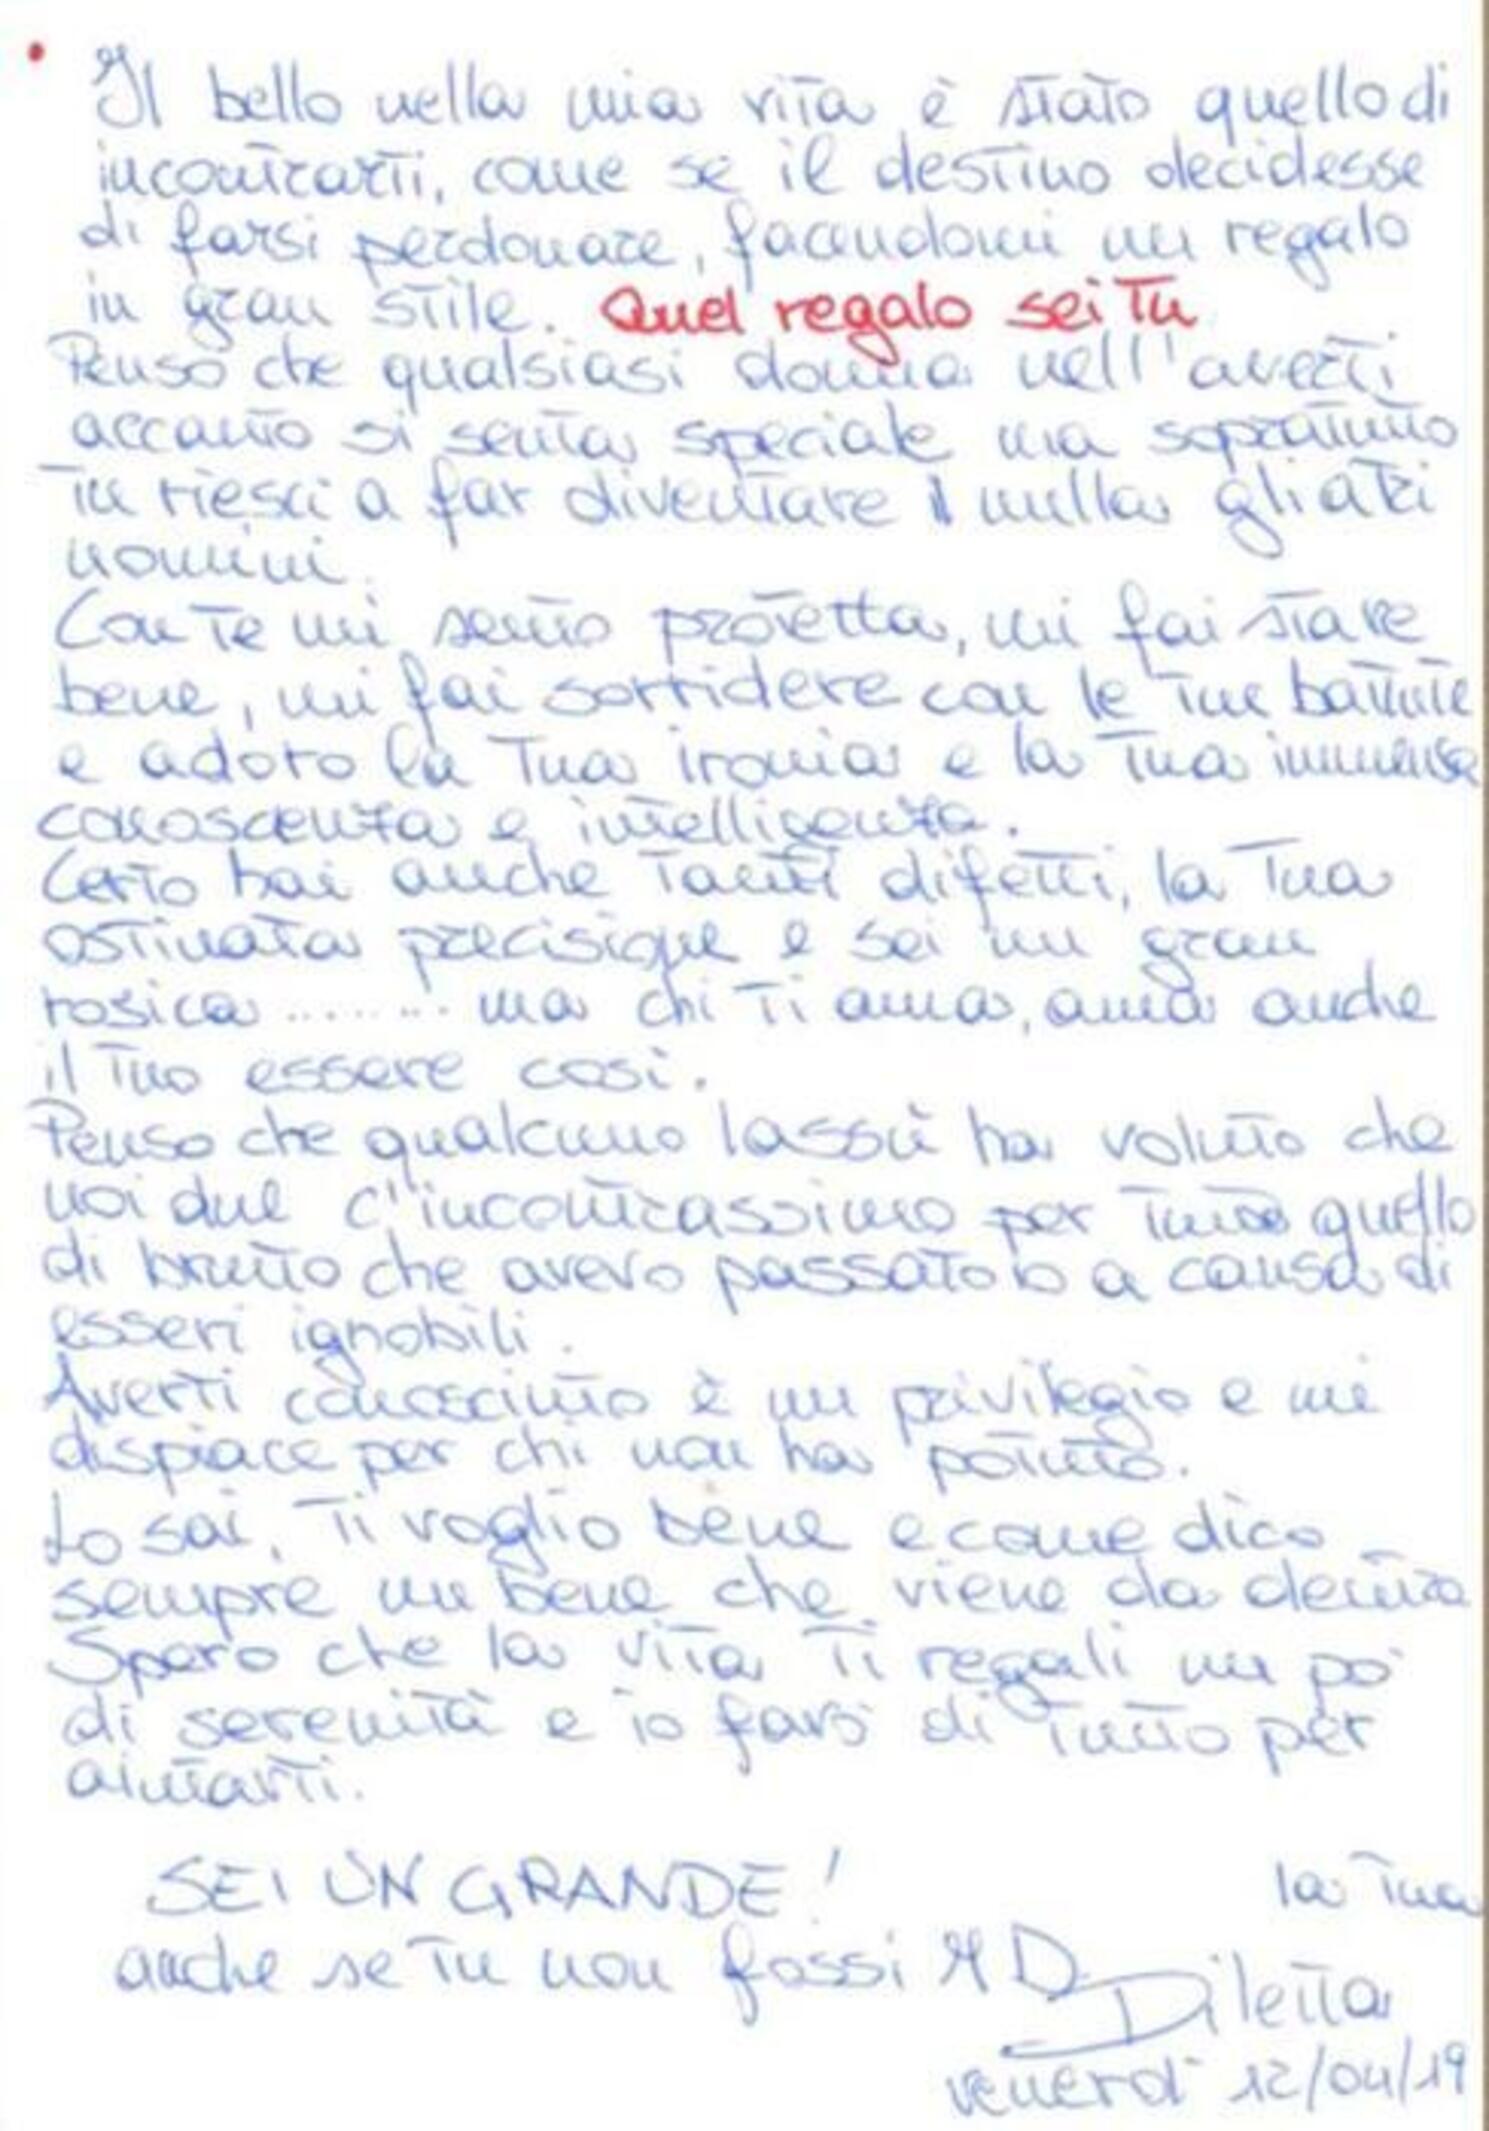 Il bello nella mia vita è stato quello di
incontrarti, come se il destino decidesse
di farsi perdonare, facendomi un regalo
in gran stile. Quel regalo sei Tu
Penso che qualsiasi donna nell'averti
accanto si senta speciale ma sopratutto
Tu riesci a far diventare il nulla gli altri
uomini.
Con Te mi sento protetta, mi fai stare
bene, mi fai sorridere con le Tue battute
e adoro la Tua ironia e la Tua immensa
conoscenza e intelligenza.
Certo hai anche Tanti difetti, la Tua
ostinata precisione e sei un gran
rosica ........ ma chi Ti ama, ama anche
il Tuo essere così.
Penso che qualcuno lassù ha voluto che
noi due c'incontrassimo per Tutto quello
di brutto che avevo passato io a causa di
esseri ignobili.
Averti conosciuto è un privilegio e mi
dispiace per chi non ha potuto.
Lo sai, Ti voglio bene e come dico
sempre un bene che viene da dentro
Spero che la vita Ti regali un pò
di serenità e io farò di Tutto per
aiutarti.
SEI UN GRANDE!
la Tua
anche se Tu non fossi MD
Diletta
venerdì 12/04/19